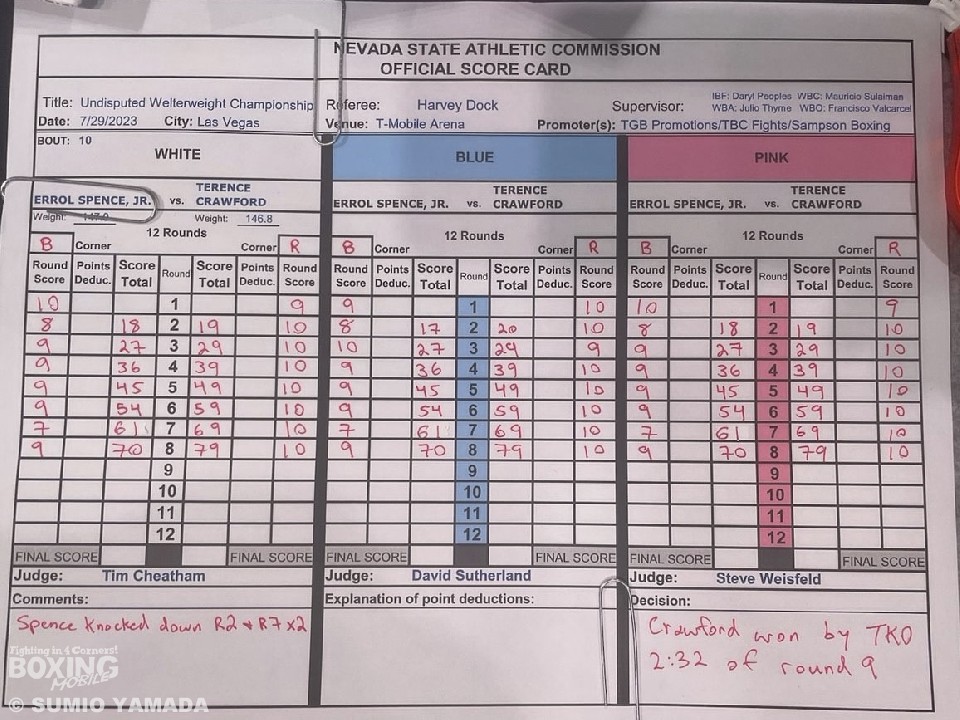 NEVADA STATE ATHLETIC COMMISSION
OFFICIAL SCORE CARD
Title: Undisputed Welterweight Championship Referee: Harvey Dock Supervisor: IBF: Daryl Peoples WBC: Mauricio Sulaiman
WBA: Julio Thyme WBO: Francisco Valcarcel
Date: 7/29/2023 City: Las Vegas Venue: T-Mobile Arena Promoter(s): TGB Promotions/TBC Fights/Sampson Boxing
BOUT: 10
WHITE BLUE PINK
ERROL SPENCE, JR. vs. TERENCE CRAWFORD ERROL SPENCE, JR. vs. TERENCE CRAWFORD ERROL SPENCE, JR. vs. TERENCE CRAWFORD
Weight: 147.0 Weight: 146.8
12 Rounds 12 Rounds 12 Rounds
B Corner Corner R B Corner Corner R B Corner Corner R
Round Score Points Deduc. Score Total Round Score Total Points Deduc. Round Score Round Score Points Deduc. Score Total Round Score Total Points Deduc. Round Score Round Score Points Deduc. Score Total Round Score Total Points Deduc. Round Score
10 1 9 9 1 10 10 1 9
8 18 2 19 10 8 17 2 20 10 8 18 2 19 10
9 27 3 29 10 10 27 3 29 9 9 27 3 29 10
9 36 4 39 10 9 36 4 39 10 9 36 4 39 10
9 45 5 49 10 9 45 5 49 10 9 45 5 49 10
9 54 6 59 10 9 54 6 59 10 9 54 6 59 10
7 61 7 69 10 7 61 7 69 10 7 61 7 69 10
9 70 8 79 10 9 70 8 79 10 9 70 8 79 10
9 9 9
10 10 10
11 11 11
12 12 12
FINAL SCORE FINAL SCORE FINAL SCORE FINAL SCORE FINAL SCORE FINAL SCORE
Judge: Tim Cheatham Judge: David Sutherland Judge: Steve Weisfeld
Comments: Explanation of point deductions: Decision:
Spence knocked down R2 + R7 x2
Crawford won by TKO
2:32 of round 9
Fighting in 4 Corners!
BOXING
MOBILE
© SUMIO YAMADA